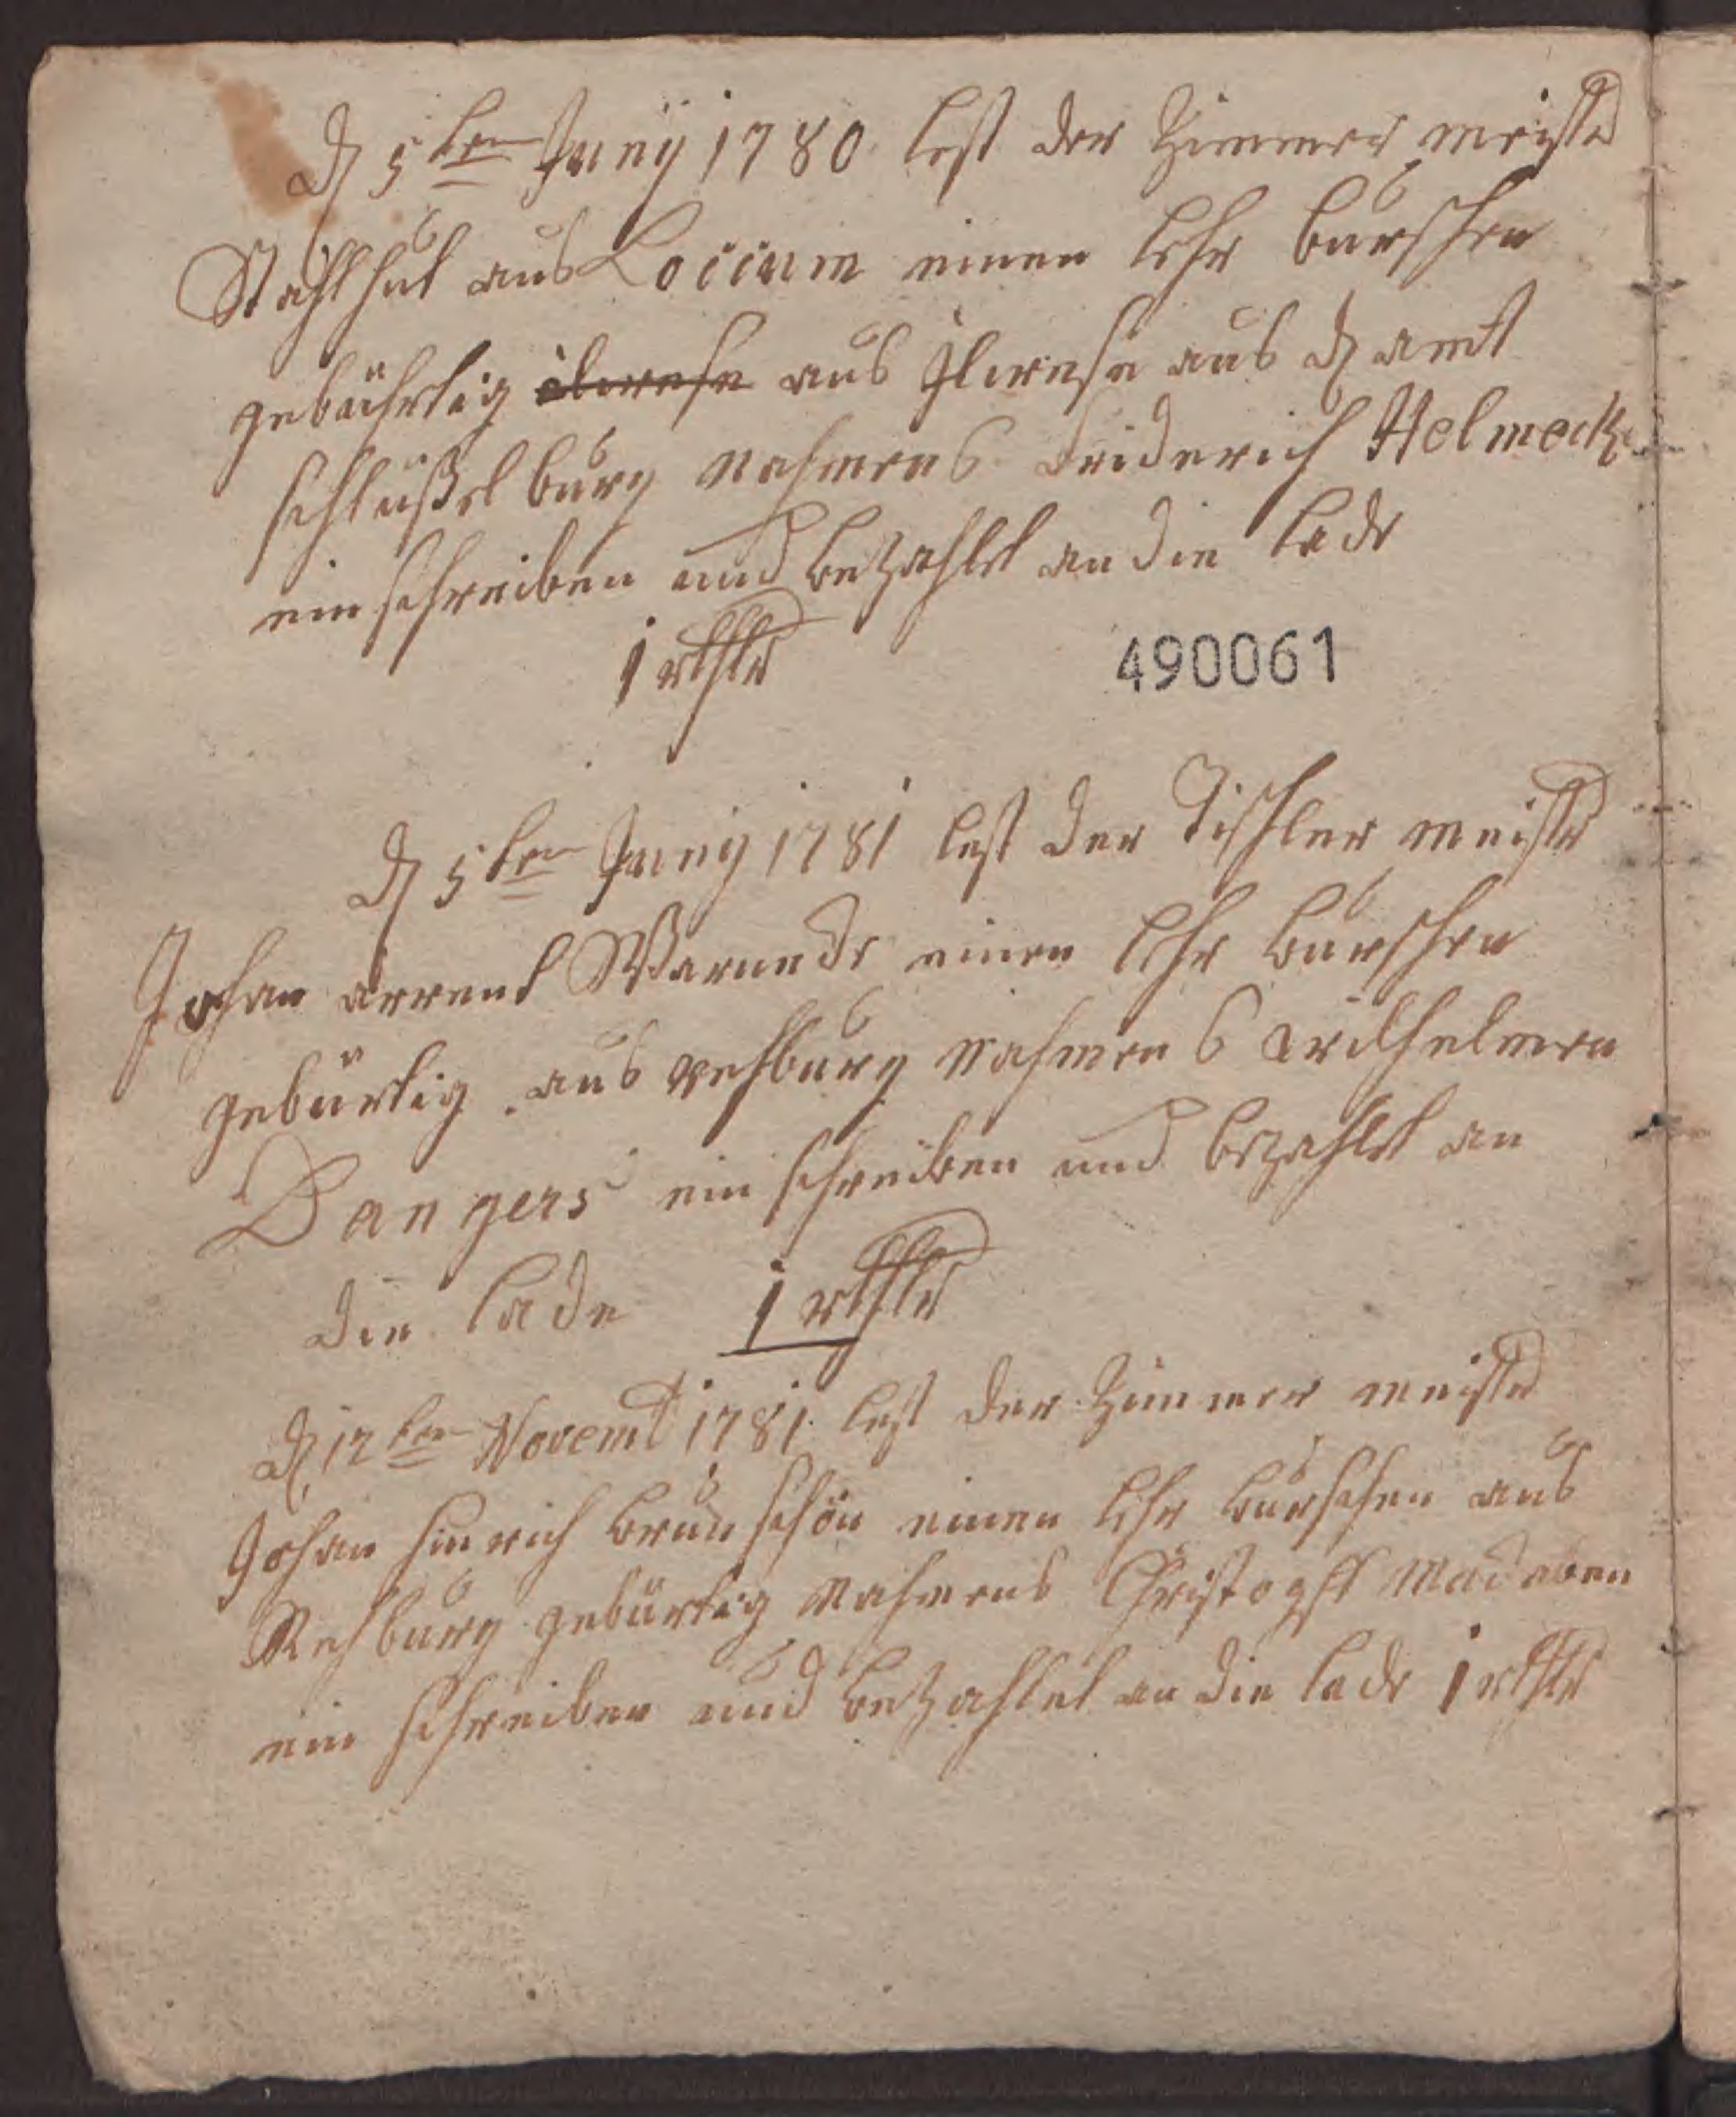 d 5ten Juny 1780 lest der Zimmer meister
Stahlhut aus Loccum einen lehr burschen
gebührtig ilwese aus Ilwese aus d amt
schlüßelburg nahmens Friderich Helmeck
ein schreiben und bezahlet an die lade
1 rthlr
490061
d 5ten Juny 1781 lest der Tischler meister
Johan arrent Warnede einen lehr burschen
gebürtig aus rehburg nahmens wilhelmen
Dangers ein schreiben und bezahlet an
die lade 1 rthlr
d 12ten Novemb 1781 lest der Zimmer meister
Johan hinrich brunschön einen lehr burschen aus
Rehburg gebürtig nahmens Christopff
ein schreiben und bezahlet an die lade 1 rthlr